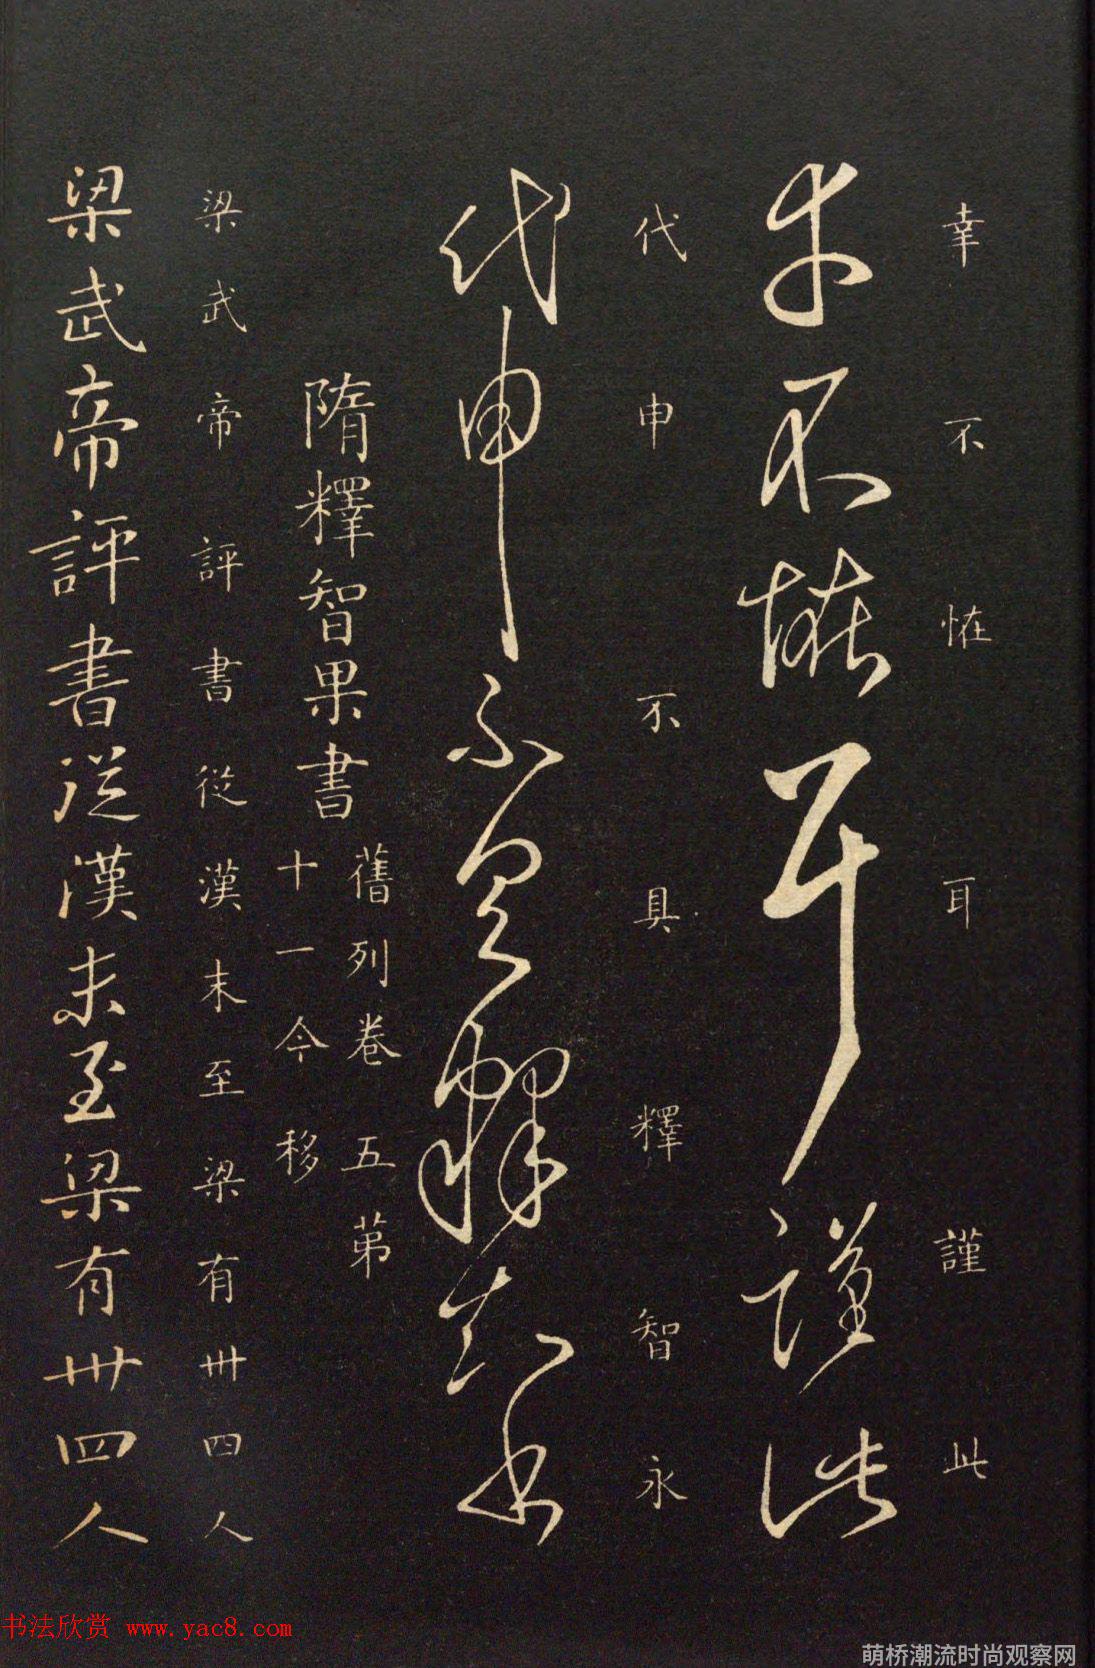 幸不恠耳謹此
幸不恠耳謹此
代申不具釋智永
代申不具釋智永
隋釋智果書
舊列卷五第
十一今移
梁武帝評書從漢末至梁有卅四人
梁武帝評書從漢末至梁有卅四人
书法欣赏 www.yac8.com
萌桥潮流时尚观察网